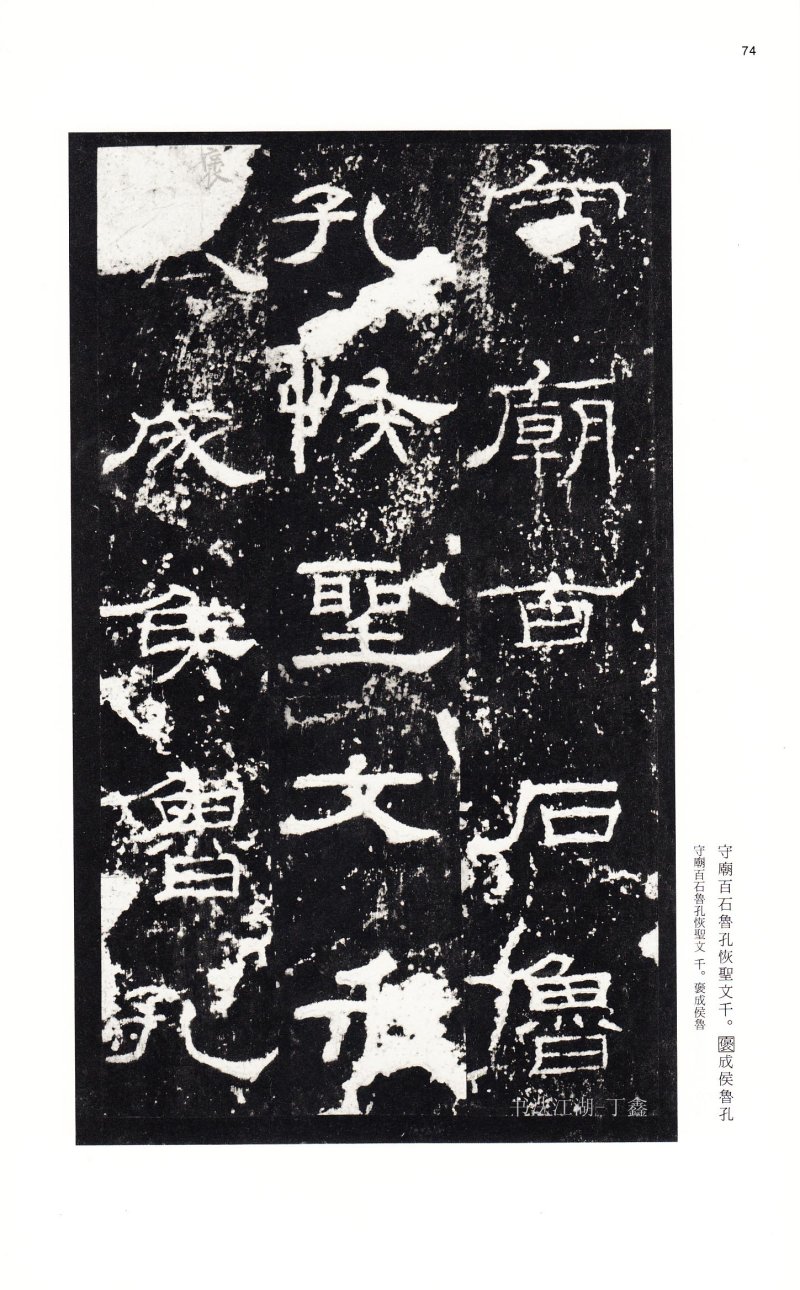 74
守廟百石魯
孔恢聖文千
褒成侯魯孔
守廟百石魯孔恢聖文千。褒成侯魯孔
守廟百石魯孔恢聖文 千。褒成侯魯
书法江湖-丁鑫